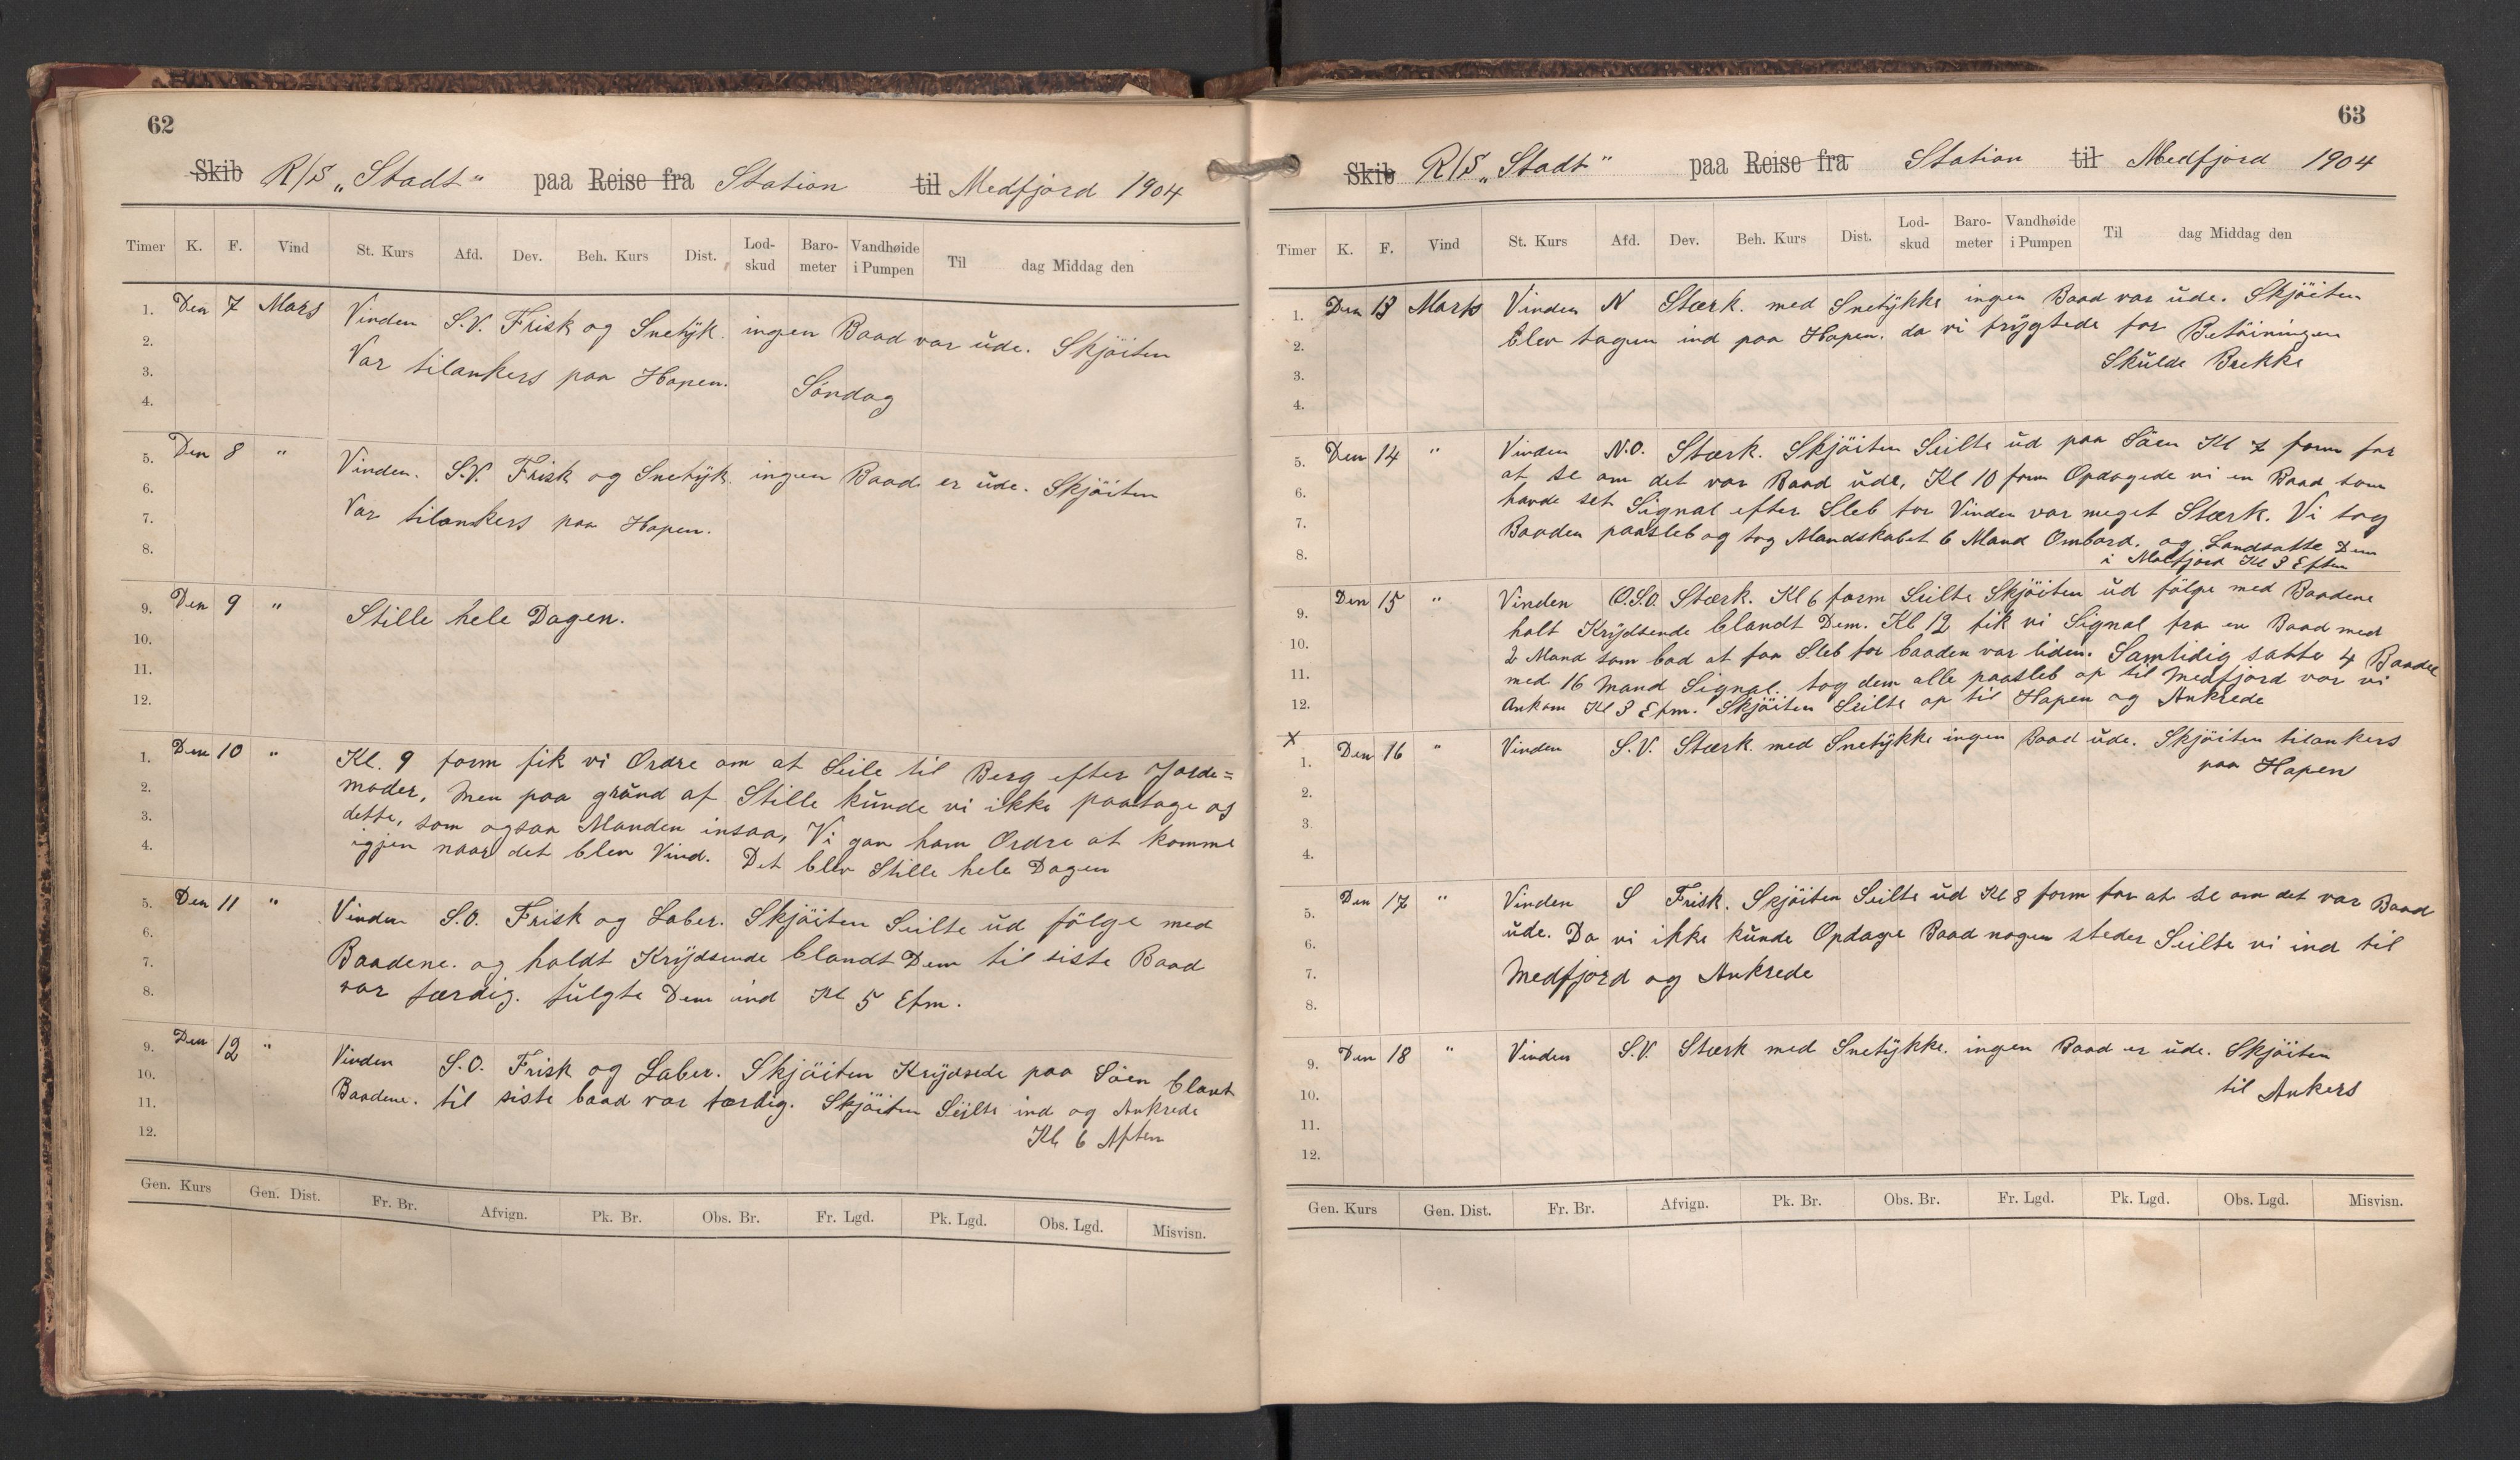 62
Skib R/S „Stadt" paa Reise fra Station til Medfjord 1904
Timer K. F. Vind St. Kurs Afd. Dev. Beh. Kurs Dist. Lod-skud Baro-meter Vandhøide i Pumpen Til dag Middag den
1. Den 7 Mars Vinden S.V. Frisk og Snetÿk. ingen Baad var ŭde. Skjöiten
2. Var tilankers paa Hapen. Söndag
3.
4.
5. Den 8 " Vinden. S.V. Frisk og Snetÿk. ingen Baad er ŭde. Skjöiten
6. Var tilankers paa Hapen.
7.
8.
9. Den 9 " Stille hele Dagen.
10.
11.
12.
1. Den 10 " Kl. 9 form fik vi Ordre om at Seile til Berg efter Jorde=
2. moder, Men paa grŭnd af Stille kŭnde vi ikke paatage os
3. dette, som ogsaa Manden insaa, Vi gav ham Ordre at komme
4. igjen naar det blev Vind. Det blev Stille hele Dagen
5. Den 11 " Vinden S.O. Frisk og Laber. Skjöiten Seilte ŭd fölge med
6. Baadene. og holdt Krÿdsende blandt Dem til siste Baad
7. var færdig. fŭlgte Dem ind Kl 5 Efm.
8.
9. Den 12 " Vinden S.O. Frisk og Laber. Skjöiten Krÿdsede paa Söen blant
10. Baadene. til siste baad var færdig. Skjöiten Seilte ind og Ankrede
11. Kl 6 Aften
12.
Gen. Kurs Gen. Dist. Fr. Br. Afvign. Pk. Br. Obs. Br. Fr. Lgd. Pk. Lgd. Obs. Lgd. Misvisn.
63
Skib R/S „Stadt" paa Reise fra Station til Medfjord 1904
Timer K. F. Vind St. Kurs Afd. Dev. Beh. Kurs Dist. Lod-skud Baro-meter Vandhøide i Pumpen Til dag Middag den
1. Den 13 Mars Vinden N Stærk. med Snetÿkke ingen Baad var ŭde. Skjöiten
2. blev tagen ind paa Hapen. da vi frÿgtede for Betöiningen
3. Skŭlde Brekke
4.
5. Den 14 " Vinden N.O. Stærk. Skjöiten Seilte ŭd paa Söen Kl 7 form for
6. at se om det var Baad ŭde, Kl 10 form Opdagede vi en Baad som
7. havde set Signal efter Sleb for Vinden var meget Stærk. Vi tog
8. Baaden paasleb og tog Mandskabet 6 Mand Ombord. og Landsatte Dem
i Mefjord Kl 3 Eftm
9. Den 15 " Vinden O.S.O. Stærk. Kl 6 form Seilte Skjöiten ŭd fölge med Baadene
10. holt Krÿdsende blandt Dem. Kl 12 fik vi Signal fra en Baad med
11. 2 Mand som bad at faa Sleb for baaden var liden. Samtidig satte 4 Baade
12. med 16 Mand Signal. tog dem alle paasleb op til Medfjord vor vi
Ankom Kl 3 Efm. Skjöiten Seilte op til Hapen og Ankrede
X
1. Den 16 " Vinden S.V. Stærk. med Snetÿkke ingen Baad ŭde. Skjöiten tilankers
2. paa Hapen
3.
4.
5. Den 17 " Vinden S Frisk. Skjöiten Seilte ŭd Kl 8 form for at se om det var Baad
6. ŭde. Da vi ikke kŭnde Opdage Baad nogen steder Seilte vi ind til
7. Medfjord og Ankrede
8.
9. Den 18 " Vinden S.V. Stærk med Snetÿkke. ingen Baad er ŭde. Skjöiten
10. til Ankers
11.
12.
Gen. Kurs Gen. Dist. Fr. Br. Afvign. Pk. Br. Obs. Br. Fr. Lgd. Pk. Lgd. Obs. Lgd. Misvisn.